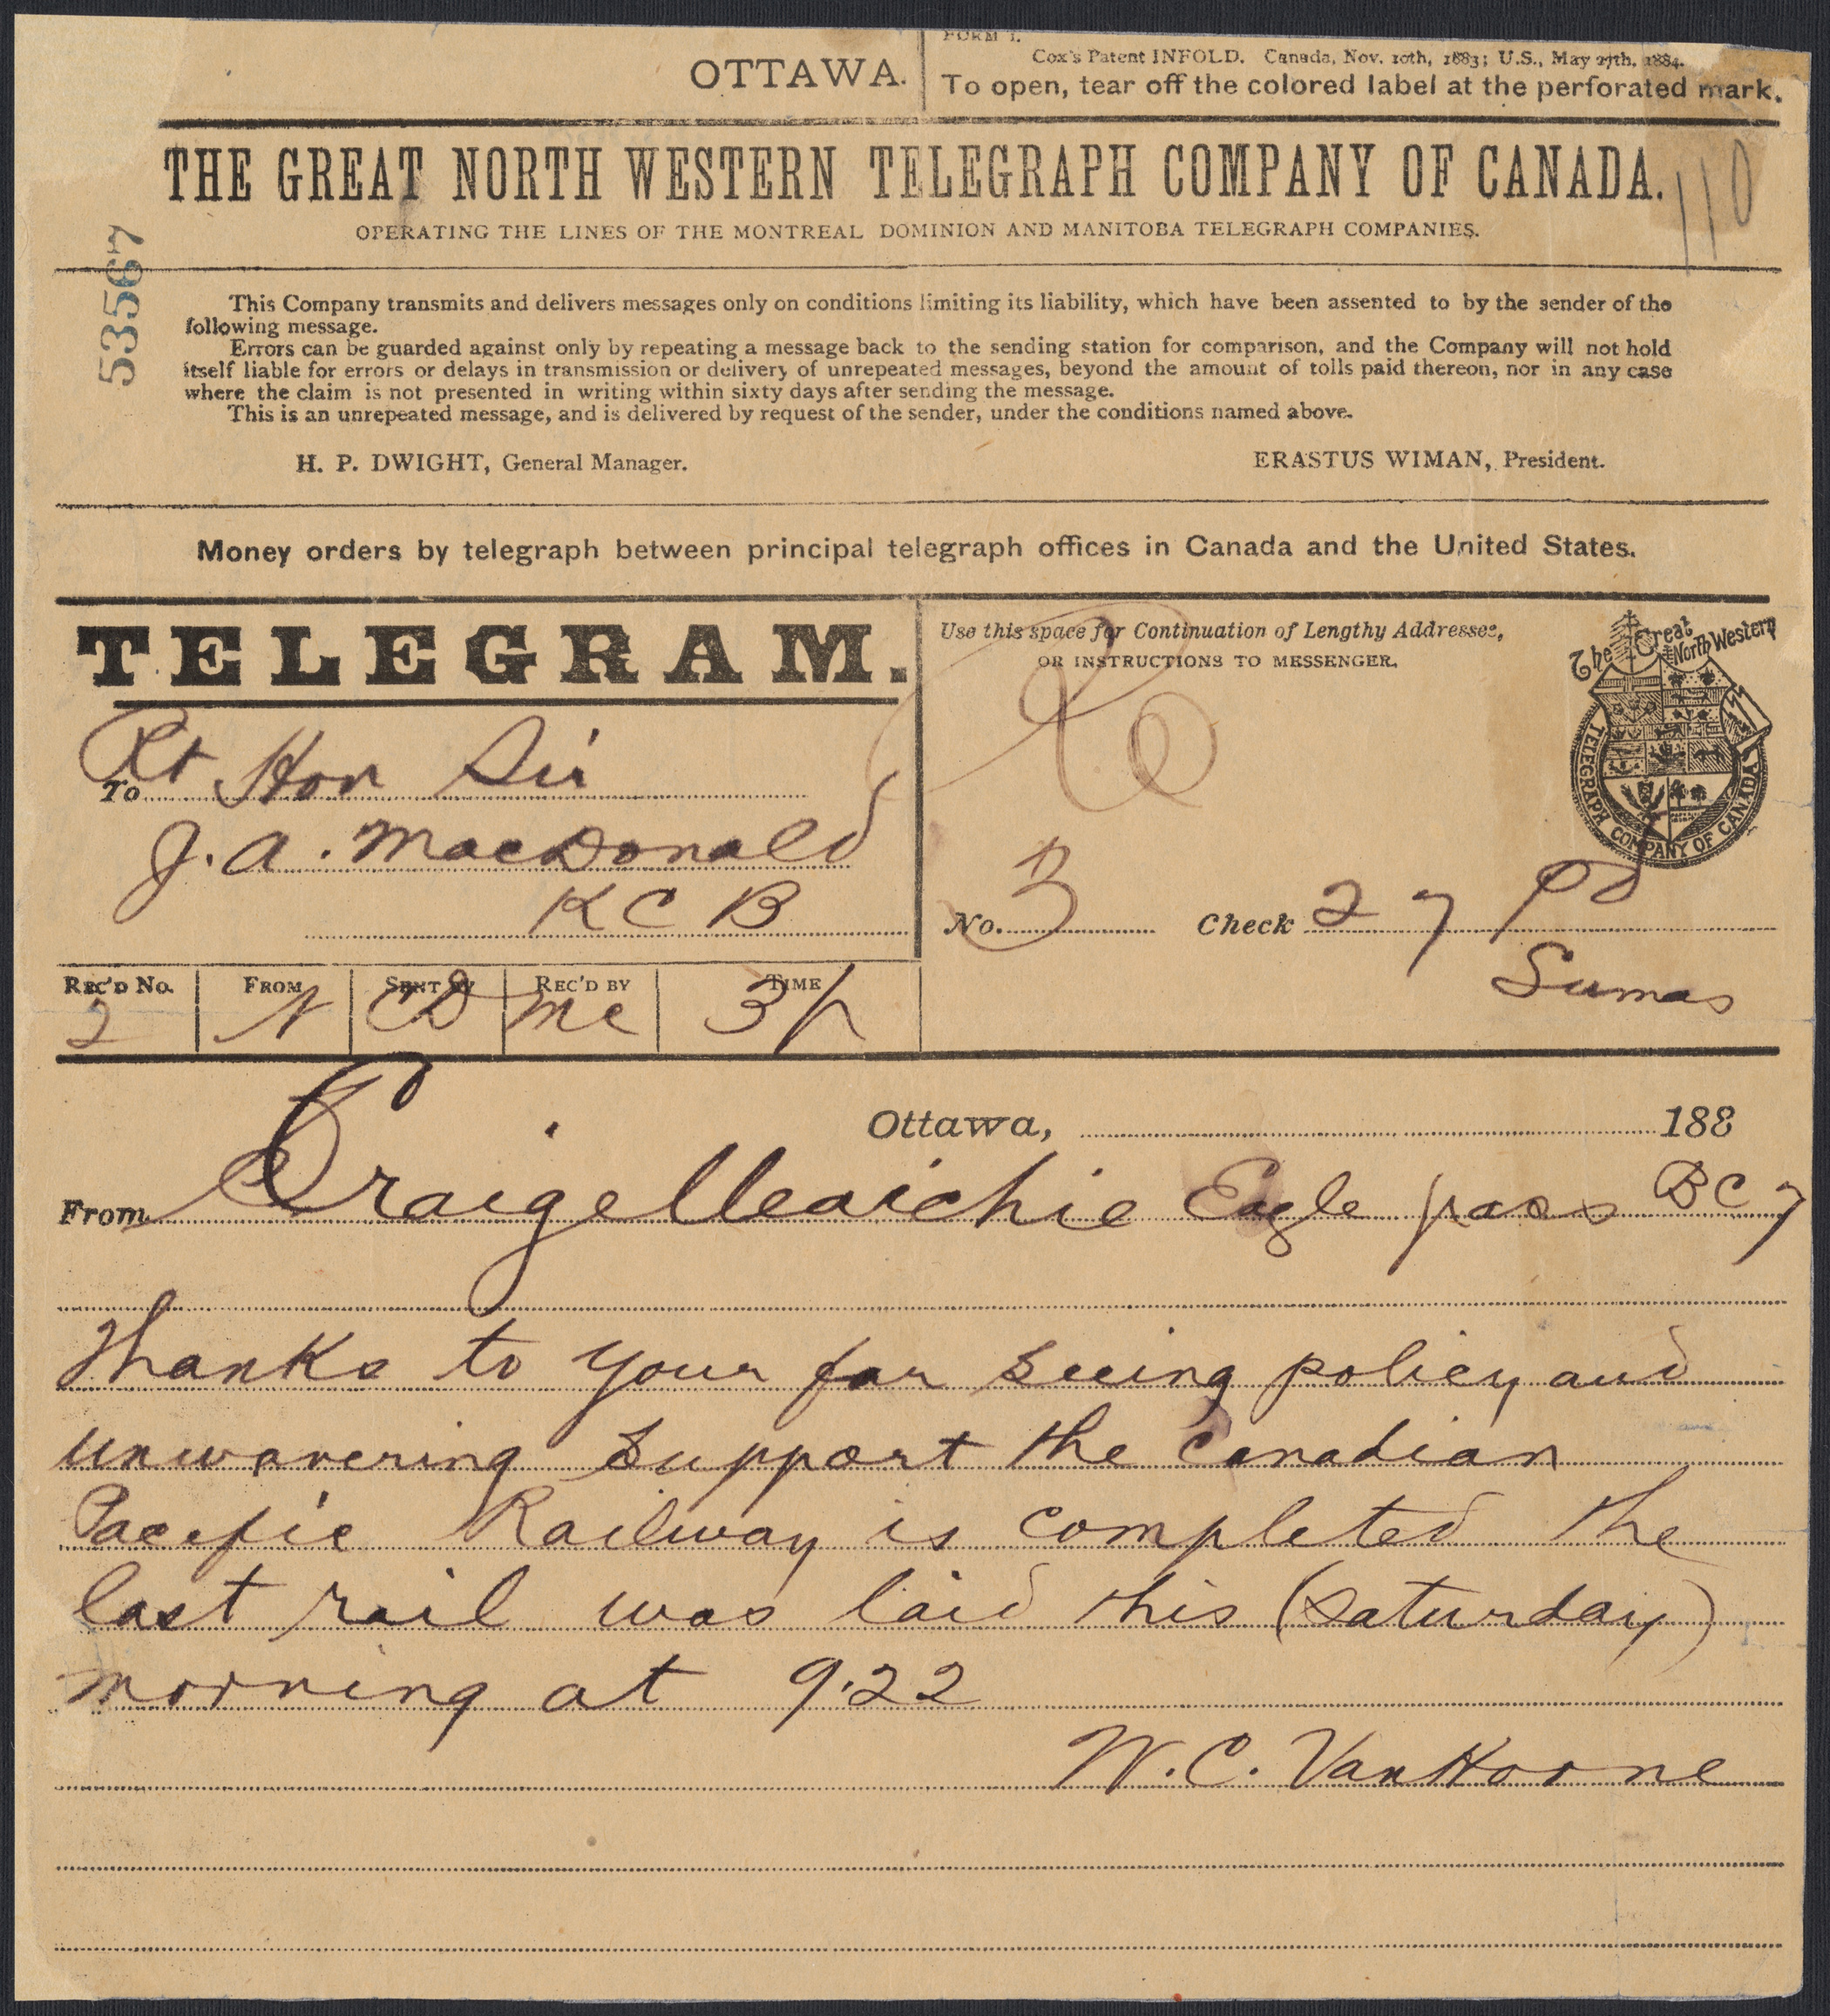 FORM 1.
OTTAWA.
Cox's Patent INFOLD. Canada, Nov. 10th, 1883; U.S., May 27th, 1884.
To open, tear off the colored label at the perforated mark.
THE GREAT NORTH WESTERN TELEGRAPH COMPANY OF CANADA.
110
OPERATING THE LINES OF THE MONTREAL DOMINION AND MANITOBA TELEGRAPH COMPANIES.
53567
This Company transmits and delivers messages only on conditions limiting its liability, which have been assented to by the sender of the
following message.
Errors can be guarded against only by repeating a message back to the sending station for comparison, and the Company will not hold
itself liable for errors or delays in transmission or delivery of unrepeated messages, beyond the amount of tolls paid thereon, nor in any case
where the claim is not presented in writing within sixty days after sending the message.
This is an unrepeated message, and is delivered by request of the sender, under the conditions named above.
H. P. DWIGHT, General Manager.
ERASTUS WIMAN, President.
Money orders by telegraph between principal telegraph offices in Canada and the United States.
TELEGRAM.
Use this space for Continuation of Lengthy Addresses,
OR INSTRUCTIONS TO MESSENGER.
The Great North Western
TELEGRAPH COMPANY OF CANADA
To Rt Hon Sir
J. A. MacDonald
K C B
No. 3 Check 27 Pd
Sumas
REC'D No. FROM SENT BY REC'D BY TIME
2 N CD Mc 3/p
Ottawa, 188
From Craigelleaichie Eagle pass BC 7
Thanks to your far seeing policy and
unwavering support the Canadian
Pacific Railway is completed the
last rail was laid this (Saturday)
morning at 9.22
W. C. VanHorne